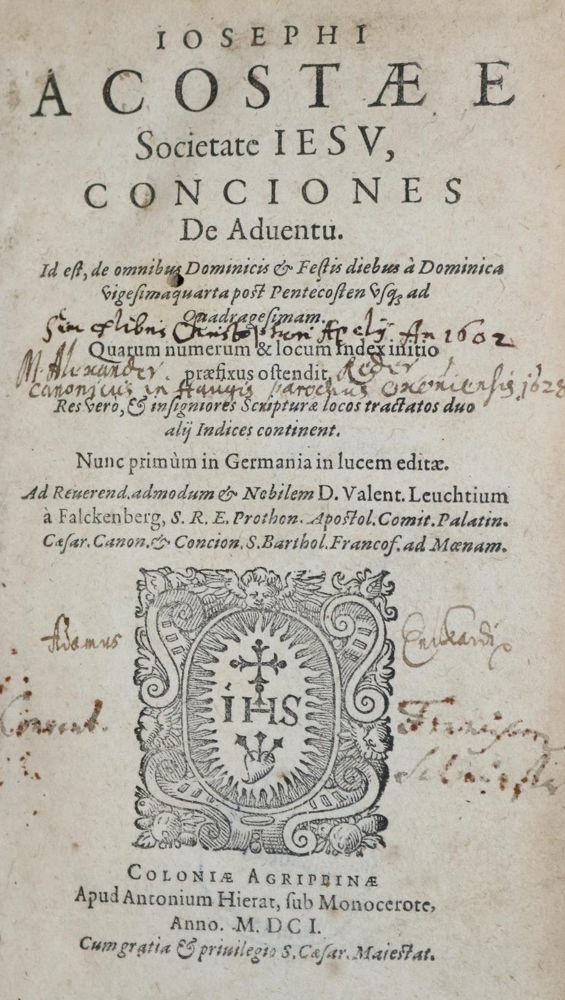 IOSEPHI
ACOSTÆ E
Societate IESV,
CONCIONES
De Aduentu.
Id est, de omnibus Dominicis & Festis diebus à Dominica
vigesimaquarta post Pentecosten vsq; ad
Quadragesimam.
Sum ex libris Christophori Apelij. An 1602
Quarum numerum & locum Index initio
præfixus ostendit.
M. Alexander Reder
canonicus in Haugis parochus 1628
Res vero, & insigniores Scripturæ locos tractatos duo
alij Indices continent.
Nunc primùm in Germania in lucem editæ.
Ad Reuerend. admodum & Nobilem D. Valent. Leuchtium
à Falckenberg, S. R. E. Prothon. Apostol. Comit. Palatin.
Cæsar. Canon. & Concion. S. Barthol. Francof. ad Mœnam.
Adamus
IHS
Convent.
COLONIÆ AGRIPPINÆ
Apud Antonium Hierat, sub Monocerote,
Anno. M. DC I.
Cum gratia & priuilegio S. Cæsar. Maiestat.